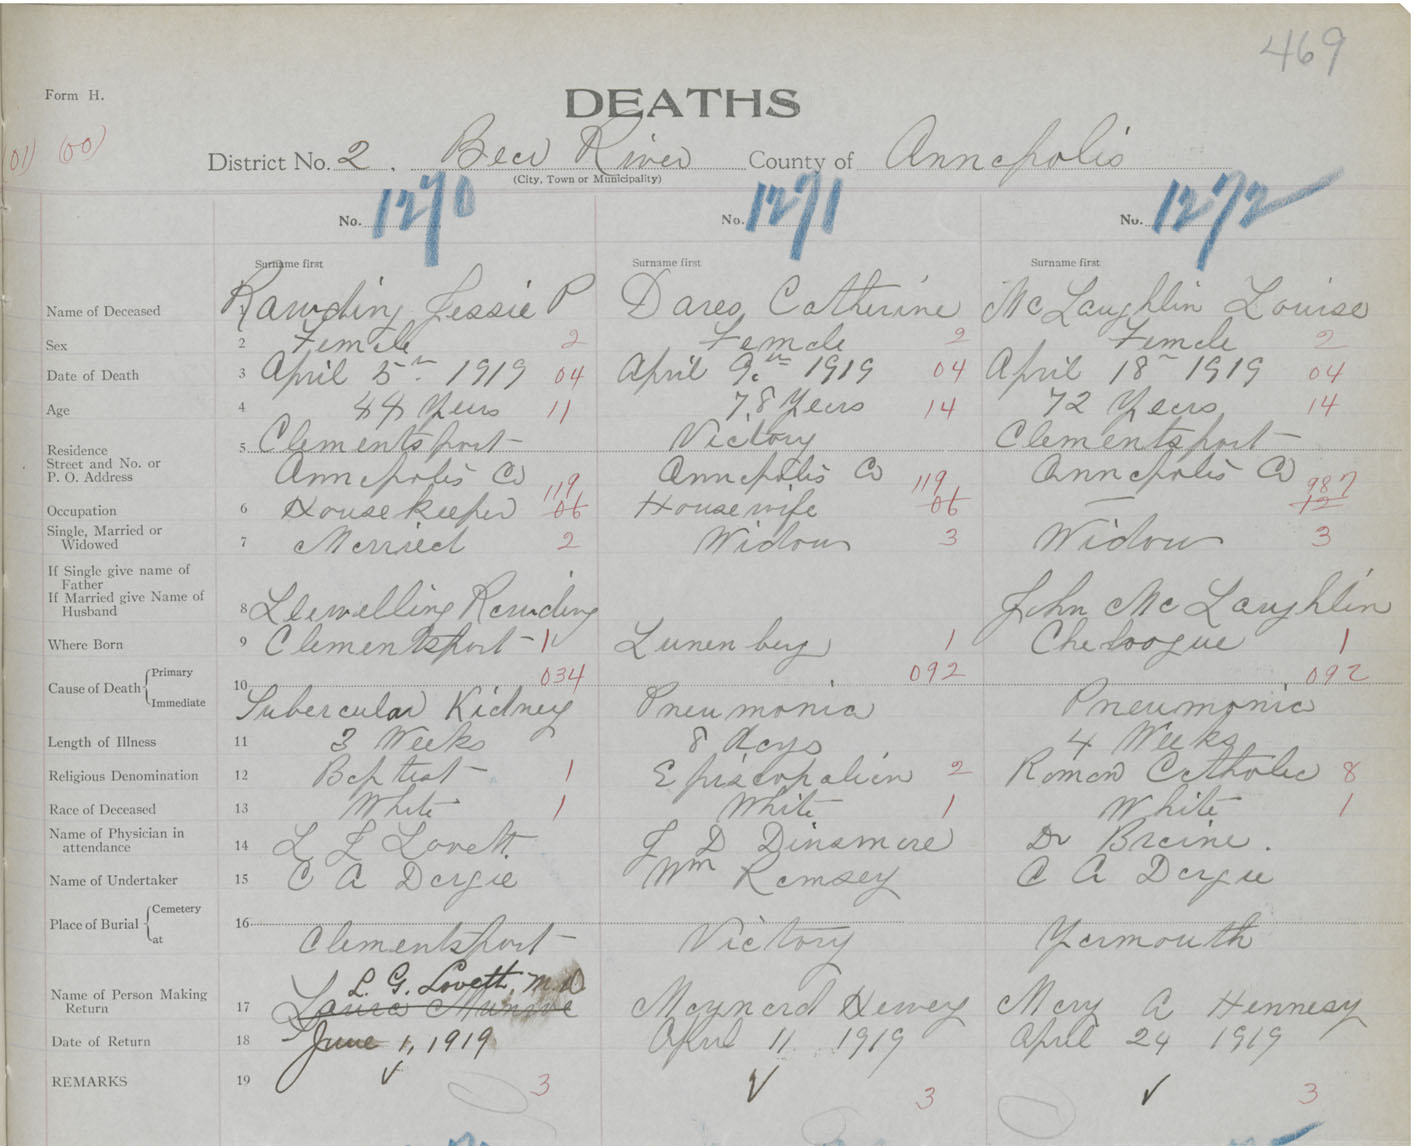 469
Form H.
DEATHS
(01) (00)
District No. 2. Bear River County of Annapolis
(City, Town or Municipality)
No. 1270 No. 1271 No. 1272
Surname first Surname first Surname first
Name of Deceased 1 Rawding Jessie P Dares Catherine McLaughlin Louise
Sex 2 Female 2 Female 2 Female 2
Date of Death 3 April 5th 1919 04 April 9th 1919 04 April 18th 1919 04
Age 4 44 Years 11 78 Years 14 72 Years 14
Residence 5 Clementsport Victory Clementsport
Street and No. or
P. O. Address Annapolis Co 119 Annapolis Co 119 Annapolis Co 987
Occupation 6 Housekeeper 06 Housewife 06 — 12
Single, Married or
Widowed 7 Married 2 Widow 3 Widow 3
If Single give name of
Father
If Married give Name of
Husband 8 Llewelling Rawding John McLaughlin
Where Born 9 Clementsport 1 Lunenberg 1 Chebogue 1
Cause of Death Primary 10 034 092 092
Immediate Tubercular Kidney Pneumonia Pneumonia
Length of Illness 11 3 Weeks 8 days 4 Weeks
Religious Denomination 12 Baptist 1 Episcopalian 2 Roman Catholic 8
Race of Deceased 13 White 1 White 1 White 1
Name of Physician in
attendance 14 L L Lovett. J D Dinsmore Dr Braine.
Name of Undertaker 15 C A Dargie Wm Ramsey C A Dargie
Place of Burial Cemetery 16
at Clementsport Victory Yarmouth
L. G. Lovett, M.D
Name of Person Making
Return 17 Laura Munroe Maynard Hewey Mary A Hennesy
Date of Return 18 June 1, 1919 April 11 1919 April 24 1919
REMARKS 19 3 3 3